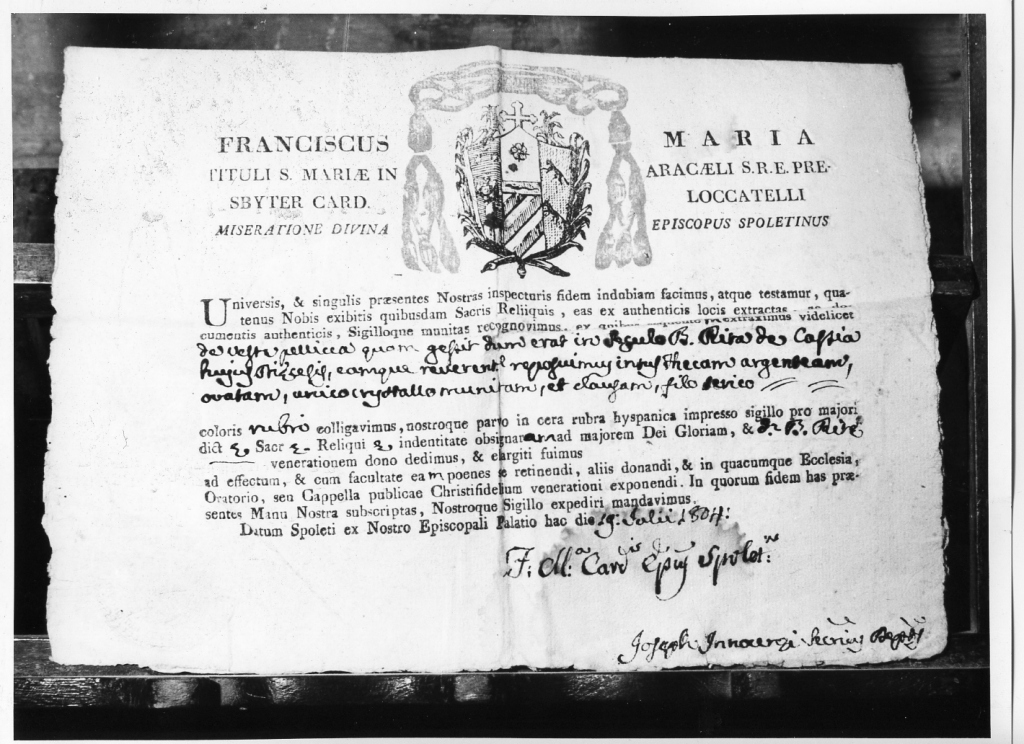 FRANCISCUS MARIA
TITULI S. MARIÆ IN ARACÆLI S.R.E. PRE-
SBYTER CARD. LOCCATELLI
MISERATIONE DIVINA EPISCOPUS SPOLETINUS
Universis, & singulis præsentes Nostras inspecturis fidem indubiam facimus, atque testamur, qua-
tenus Nobis exibitis quibusdam Sacris Reliquiis, eas ex authenticis locis extractas
cumentis authenticis, Sigilloque munitas recognovimus, ex quibus extraximus videlicet
de veste pellicea quam gessit dum erat in sæculo B. Rita de Cassia
hujus Diæcesis, eamque reverent.r reposuimus intus thecam argenteam,
ovatam, unico crystallo munitam, et clausam, filo serico
coloris rubro colligavimus, nostroque parvo in cera rubra hyspanica impresso sigillo pro majori
dict æ Sacr æ Reliqui æ indentitate obsignatam ad majorem Dei Gloriam, & B. Ritæ
venerationem dono dedimus, & elargiti fuimus
ad effectum, & cum facultate eam poenes se retinendi, aliis donandi, & in quacumque Ecclesia,
Oratorio, seu Cappella publicae Christifidelium venerationi exponendi. In quorum fidem has præ-
sentes Manu Nostra subscriptas, Nostroque Sigillo expediri mandavimus.
Datum Spoleti ex Nostro Episcopali Palatio hac die 19: Julii 1804:
F: M.a Card.is Ep̃us Spolet.nus
Joseph Innocenzi